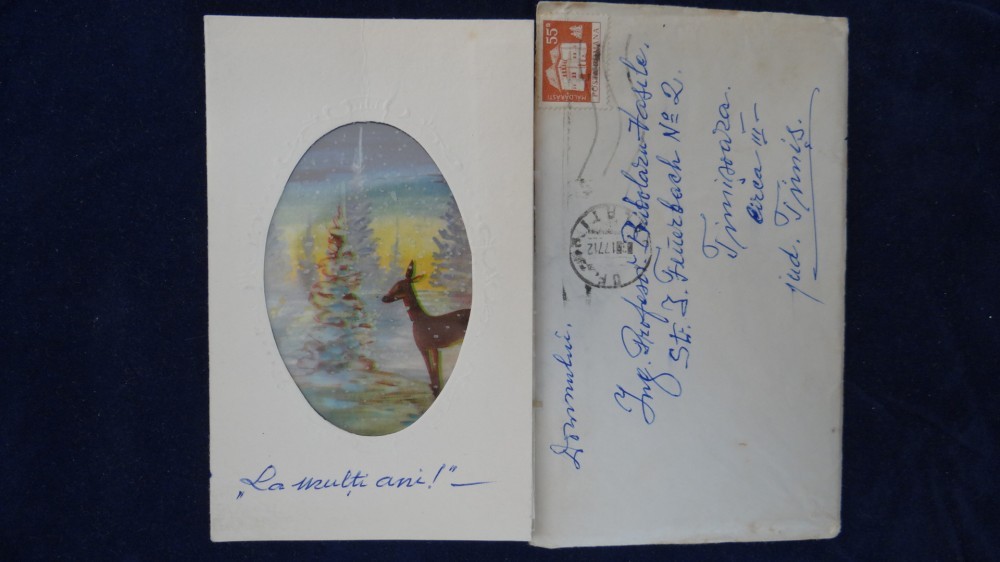 „La mulți ani!" —
55
POSTA ROMANA
MALDARASTI
Domnului.
Ing. Profesor Bubolaru Vasile.
Str. I. Feuerbach No 2.
Timisoara.
Circa III
jud. Timiș.